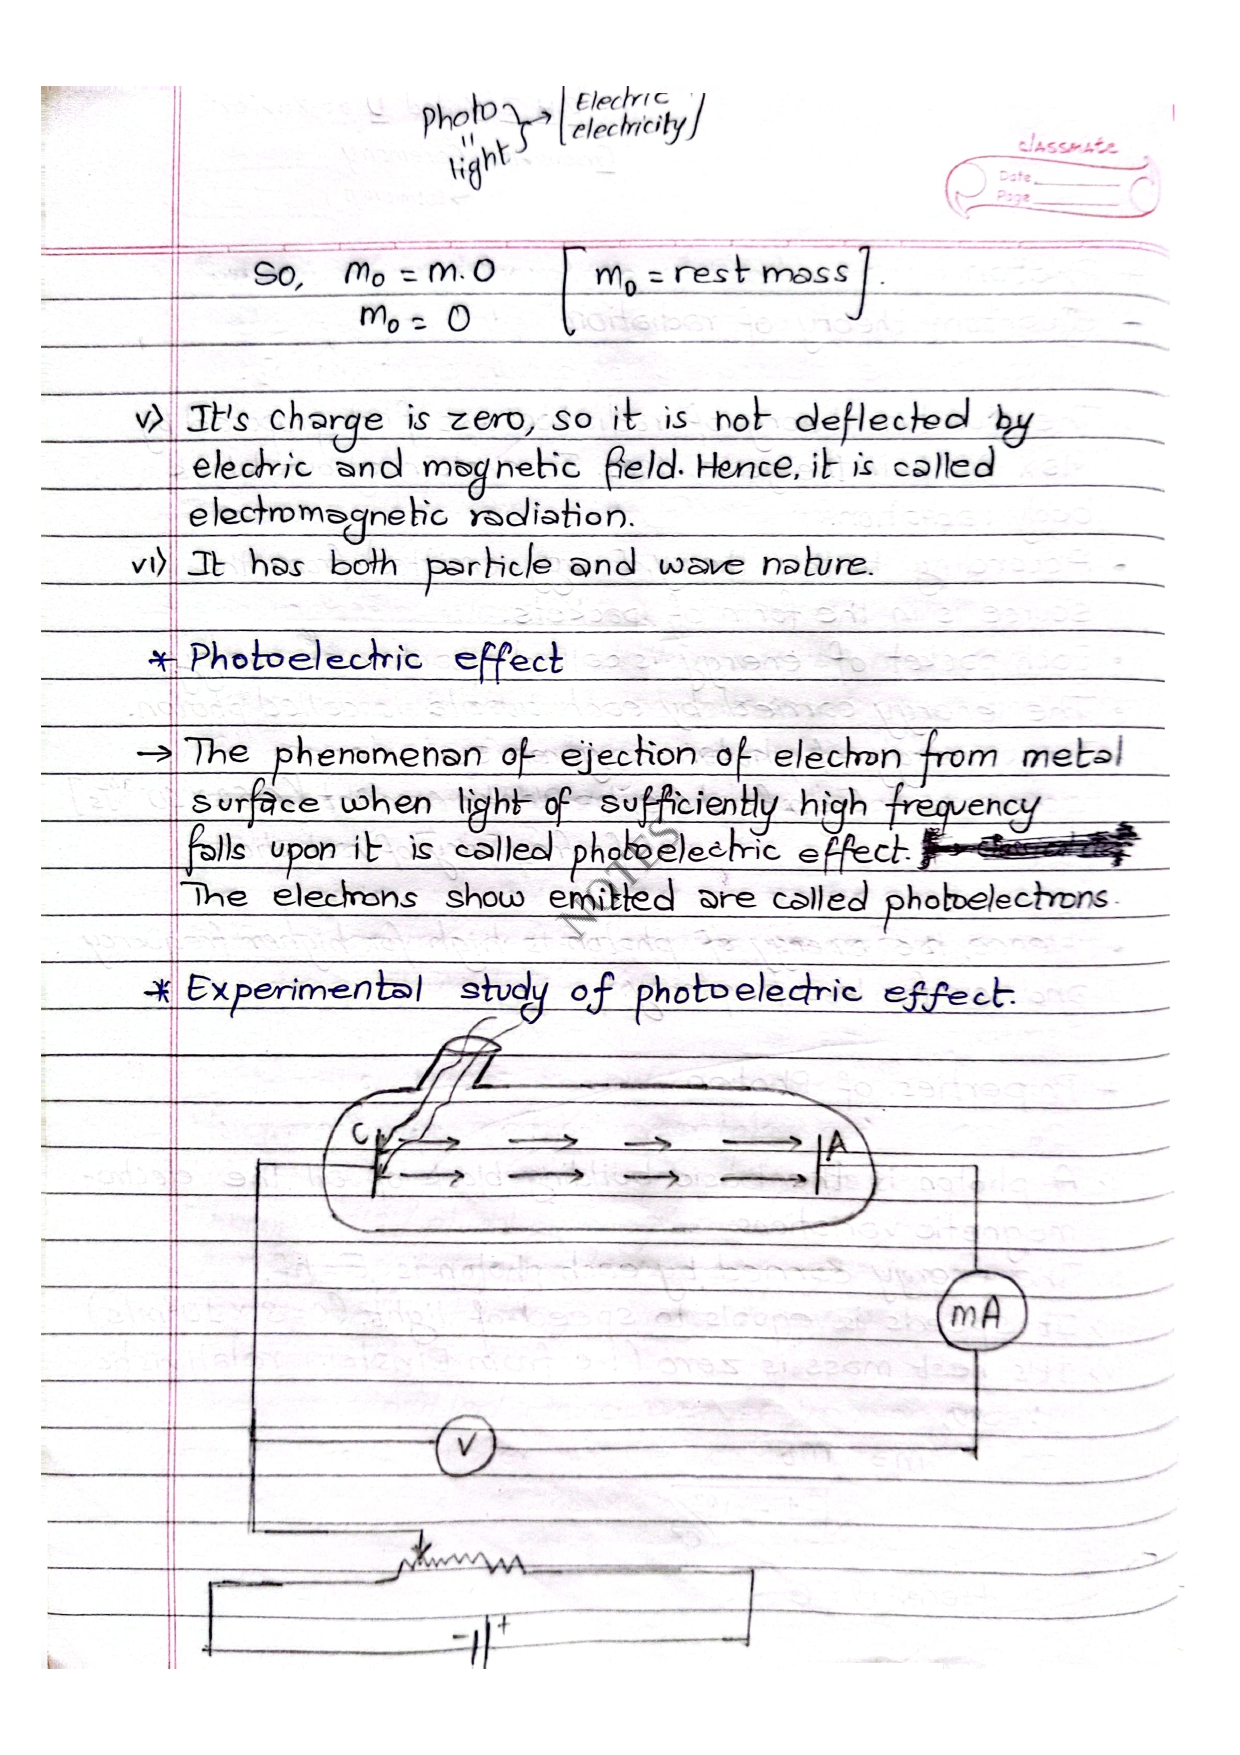 Photo → [Electric
electricity]
"
light
classmate
Date
Page
So, m₀ = m.0 [m₀ = rest mass].
m₀ = 0
v) It's charge is zero, so it is not deflected by
electric and magnetic field. Hence, it is called
electromagnetic radiation.
vi) It has both particle and wave nature.
* Photoelectric effect
→ The phenomenan of ejection of electron from metal
surface when light of sufficiently high frequency
falls upon it is called photoelectric effect.
The electrons show emitted are called photoelectrons.
NOTES
* Experimental study of photoelectric effect.
C A
mA
V
- +